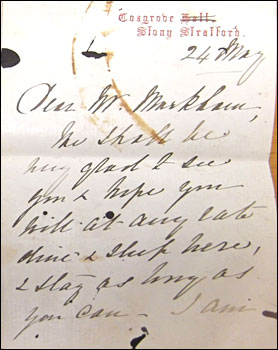 Cosgrove Hall.
Stony Stratford.
24 May
Dear Mr. Markham,
We shall be
very glad to see
you & hope you
will at any rate
dine & sleep here,
& stay as long as
you can – I am